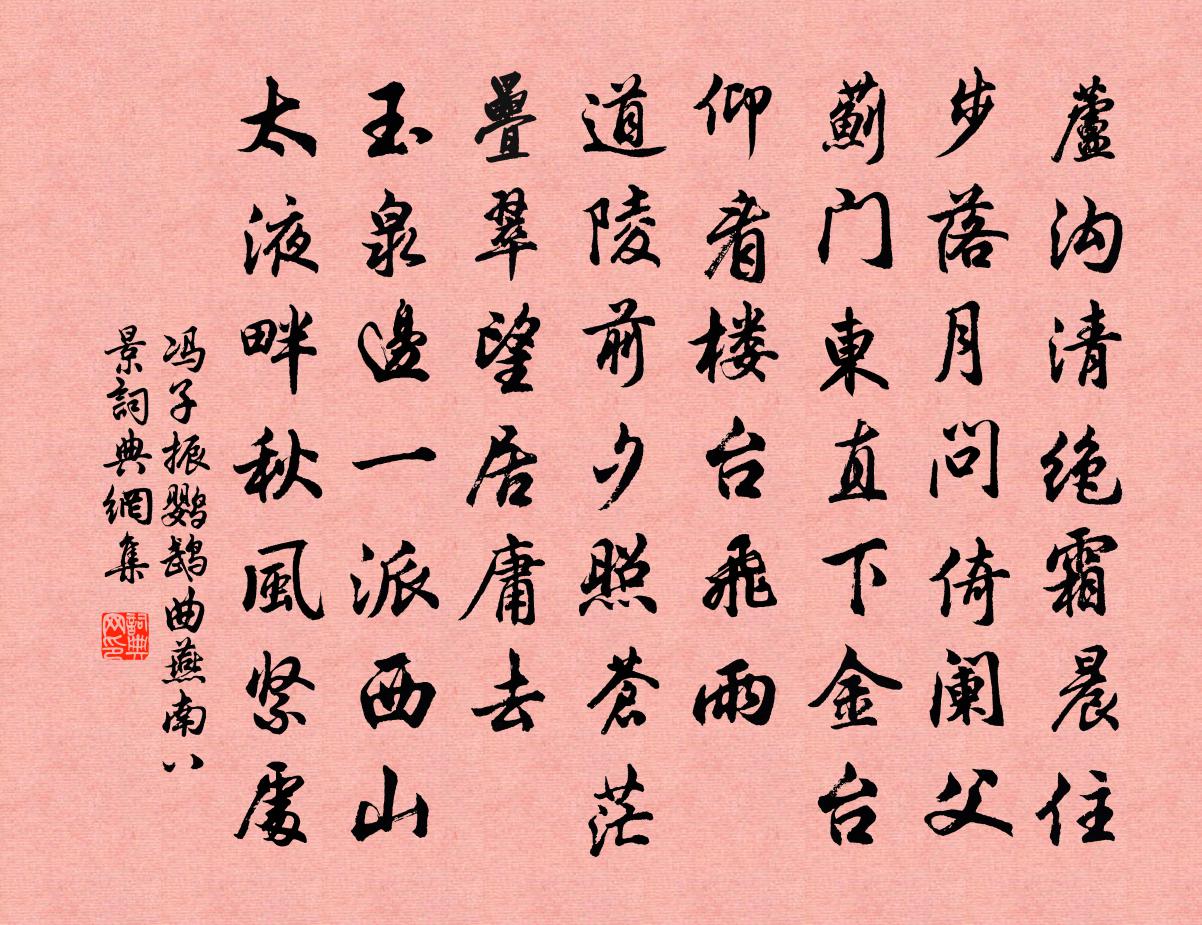 蘆沟清绝霜晨住
步落月问倚阑父
薊门東直下金台
仰看楼台飛雨
道陵前夕照蒼茫
疊翠望居庸去
玉泉邊一派西山
太液畔秋風紧處
冯子振鹦鹉曲燕南八
景詞典網集
詞典网印